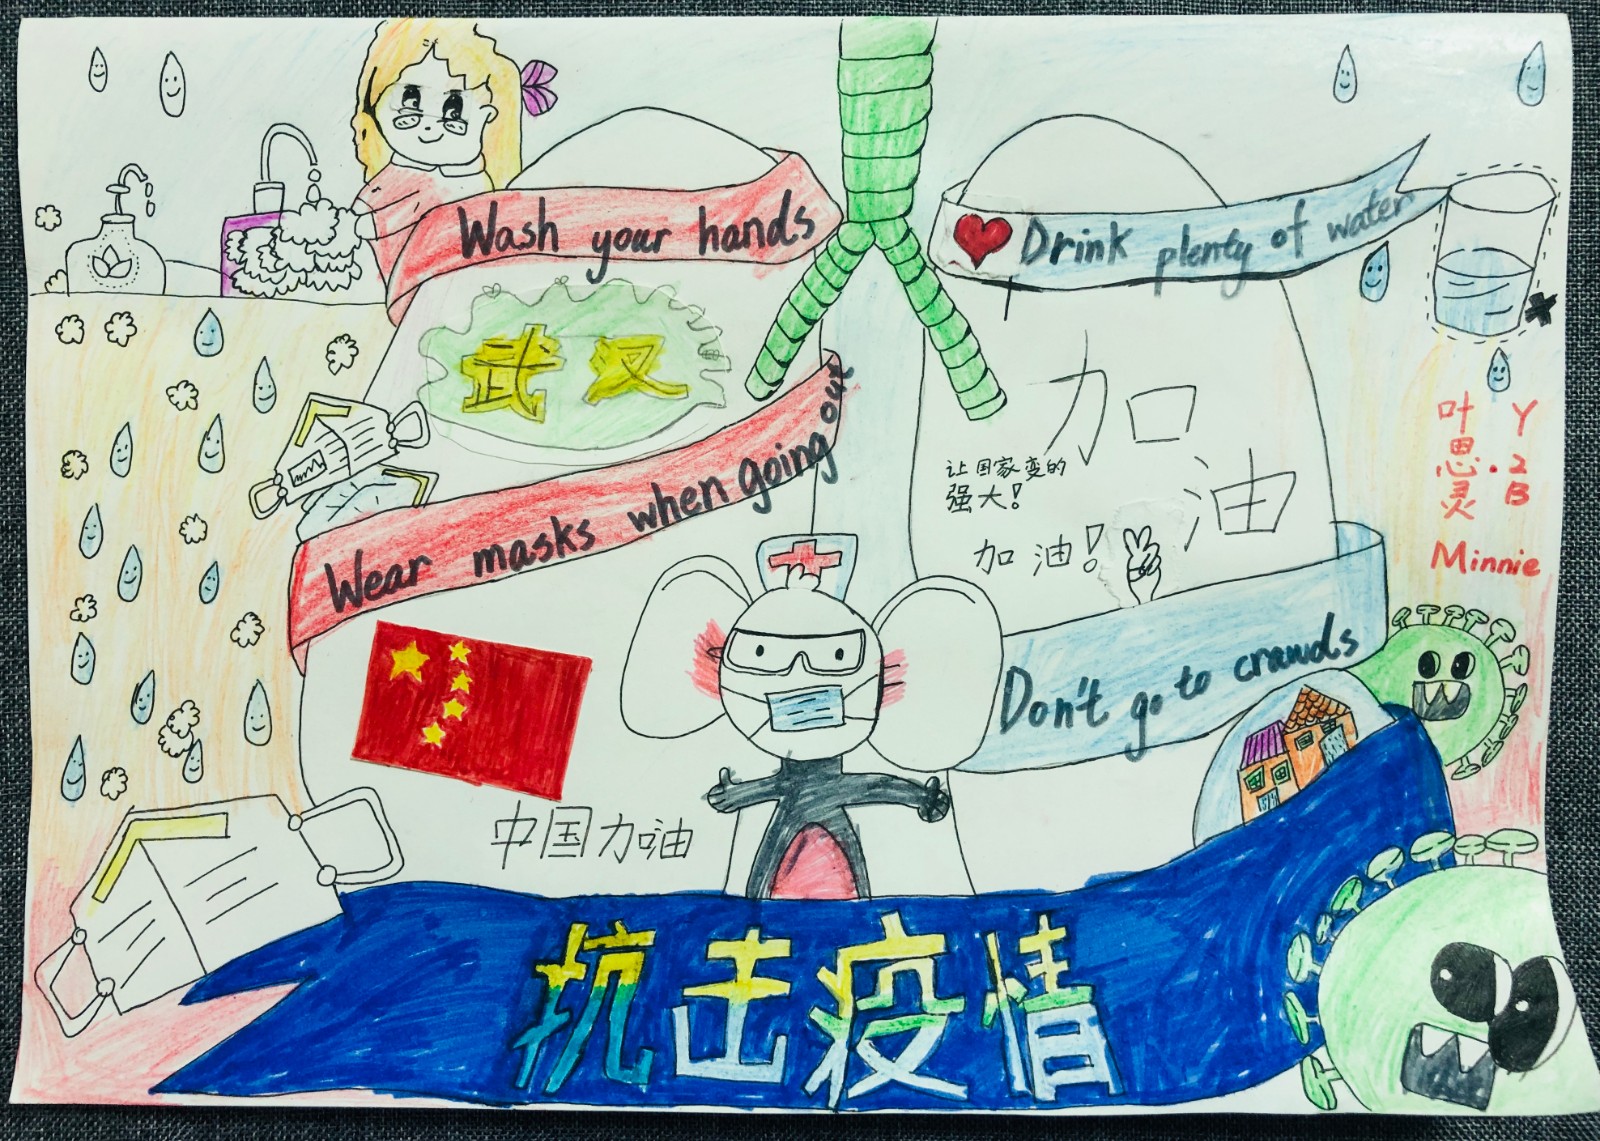 Wash your hands
Drink plenty of water
武汉
Wear masks when going out
加油
让国家变的
强大！
加油！
叶思灵
Y.2B
Minnie
Don't go to crawds
中国加油
抗击疫情